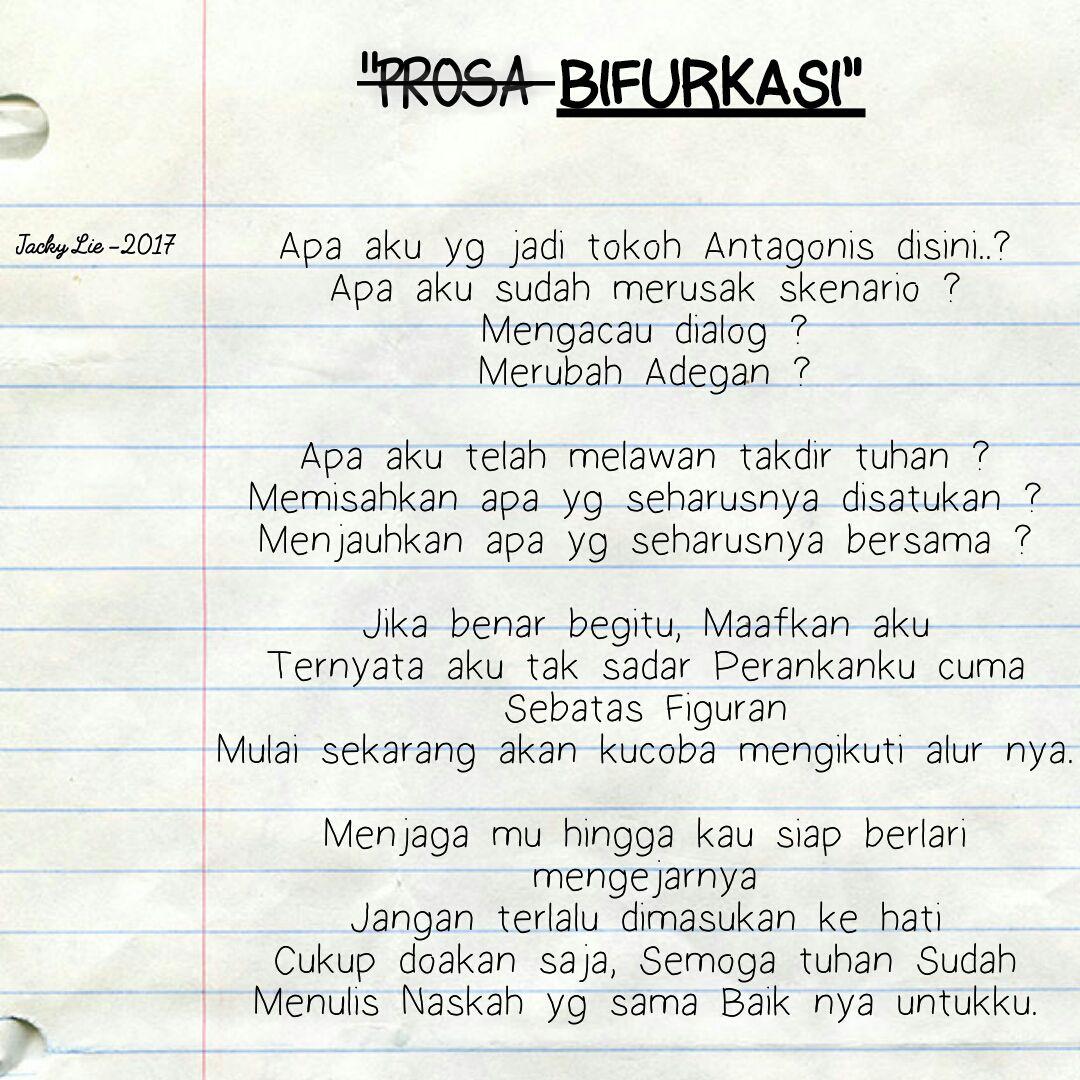 "PROSA BIFURKASI"
Jacky Lie -2017
Apa aku yg jadi tokoh Antagonis disini..?
Apa aku sudah merusak skenario ?
Mengacau dialog ?
Merubah Adegan ?
Apa aku telah melawan takdir tuhan ?
Memisahkan apa yg seharusnya disatukan ?
Menjauhkan apa yg seharusnya bersama ?
Jika benar begitu, Maafkan aku
Ternyata aku tak sadar Perankanku cuma
Sebatas Figuran
Mulai sekarang akan kucoba mengikuti alur nya.
Menjaga mu hingga kau siap berlari
mengejarnya
Jangan terlalu dimasukan ke hati
Cukup doakan saja, Semoga tuhan Sudah
Menulis Naskah yg sama Baik nya untukku.